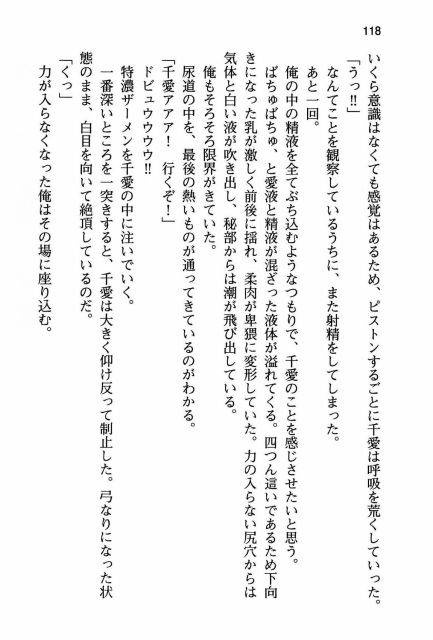 118
いくら意識はなくても感覚はあるため、ピストンするごとに千愛は呼吸を荒くしていった。
「うっ!!」
なんてことを観察しているうちに、また射精をしてしまった。
あと一回。
俺の中の精液を全てぶち込むようなつもりで、千愛のことを感じさせたいと思う。
ばちゅばちゅ、と愛液と精液が混ざった液体が溢れてくる。四つん這いであるため下向
きになった乳が激しく前後に揺れ、柔肉が卑猥に変形していた。力の入らない尻穴からは
気体と白い液が吹き出し、秘部からは潮が飛び出している。
俺もそろそろ限界がきていた。
尿道の中を、最後の熱いものが通ってきているのがわかる。
「千愛アアア! 行くぞ!」
ドビュウウウウ!!
特濃ザーメンを千愛の中に注いでいく。
一番深いところを一突きすると、千愛は大きく仰け反って制止した。弓なりになった状
態のまま、白目を向いて絶頂しているのだ。
「くっ」
力が入らなくなった俺はその場に座り込む。